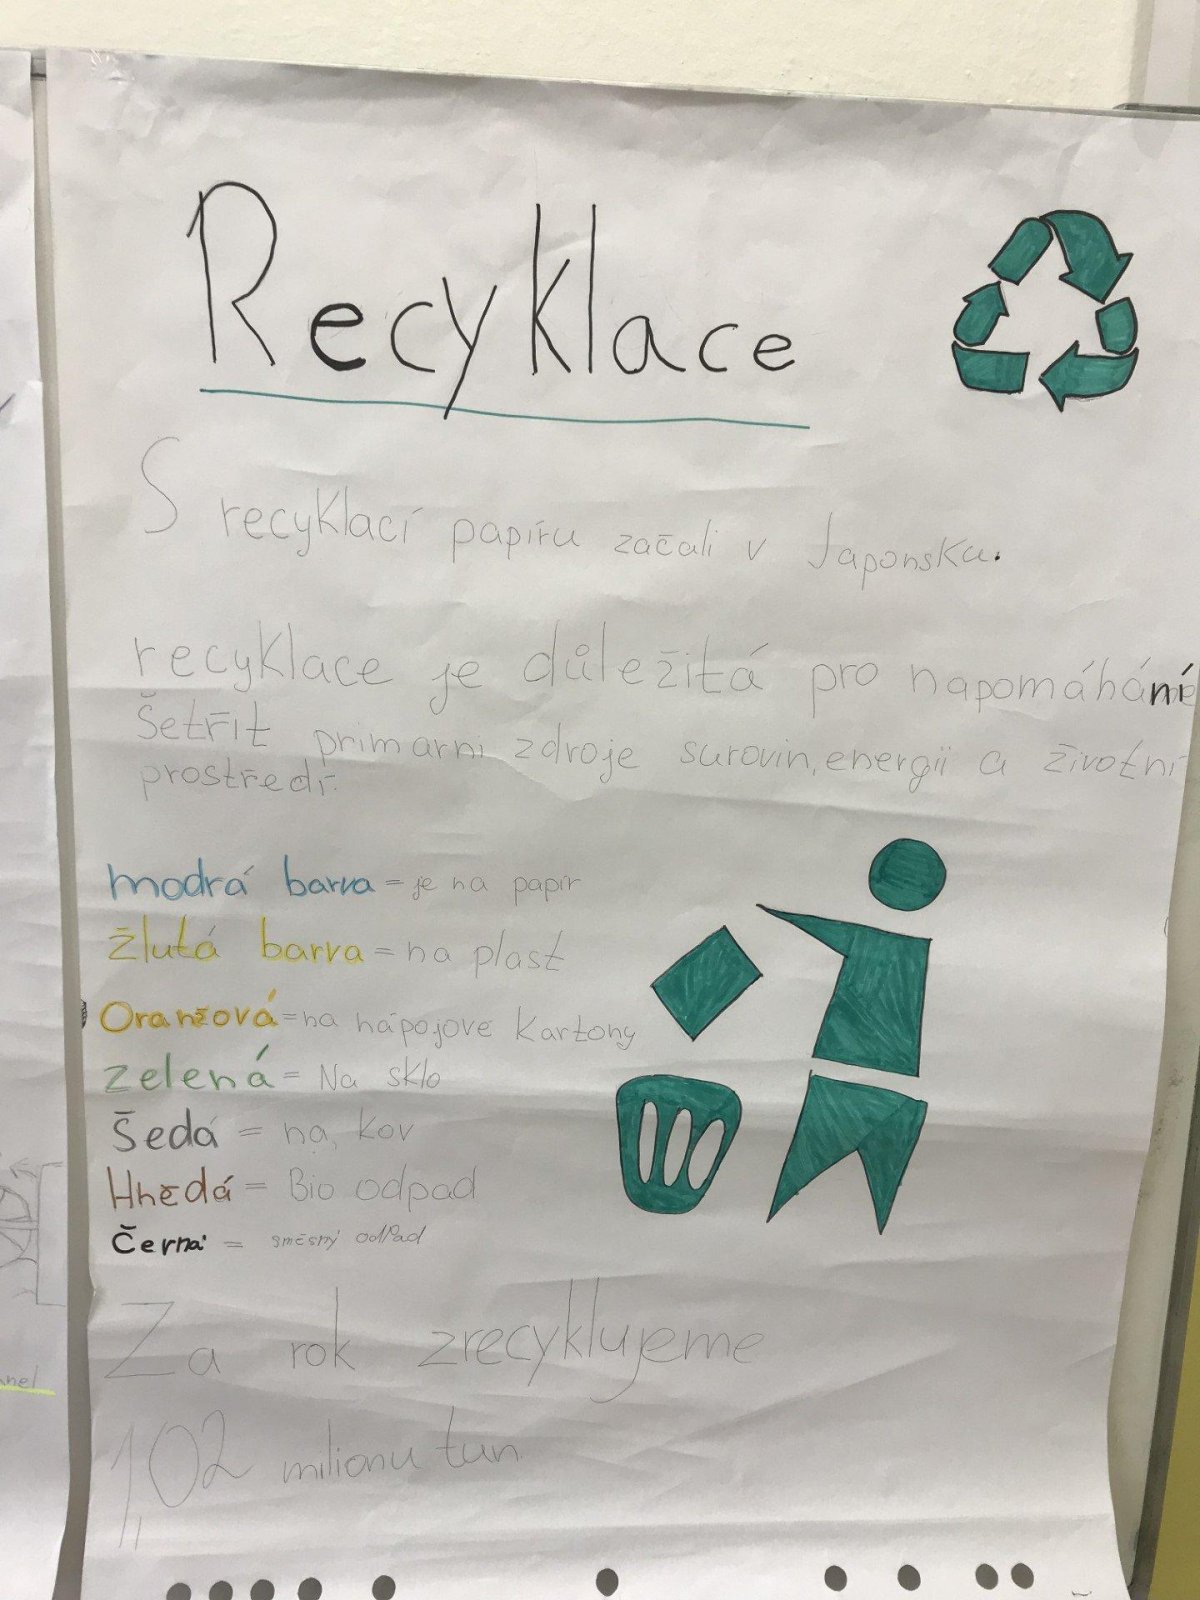 Recyklace
S recyklací papíru začali v Japonsku.
recyklace je důležitá pro napomáhání
šetřit primarni zdroje surovin, energii a životní
prostředí.
modrá barva = je na papír
žlutá barva = na plast
Oranžová = na nápojové Kartony
zelená = Na sklo
Šedá = na, kov
Hnědá = Bio odpad
Černá = směsný odpad
Za rok zrecyklujeme
1,02 milionu tun